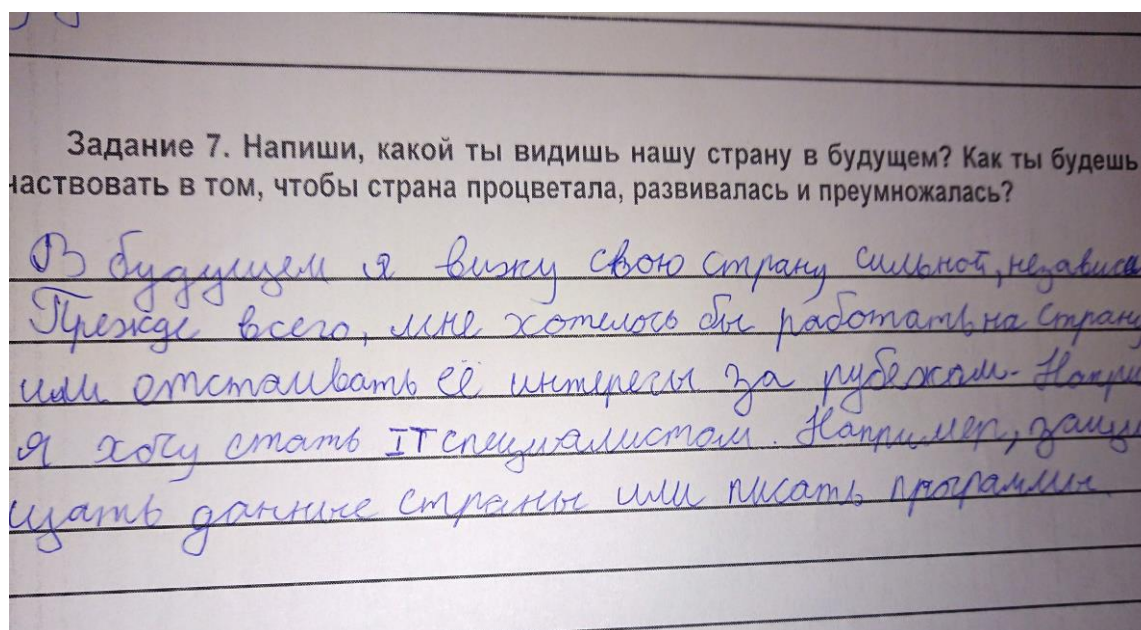 Задание 7. Напиши, какой ты видишь нашу страну в будущем? Как ты будешь
частвовать в том, чтобы страна процветала, развивалась и преумножалась?
В будущем я вижу свою страну сильной, независи
Прежде всего, мне хотелось бы работать на страну
или отстаивать её интересы за рубежом. Напри
я хочу стать IT специалистом. Например, защи
щать данные страны или писать программы.